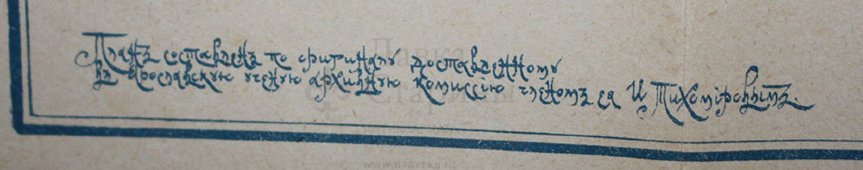 Планъ составленъ по оригиналу доставленному
въ Ярославскую ученую архивную комиссію членомъ ея И Тихоміровымъ.
Лавка
Старины